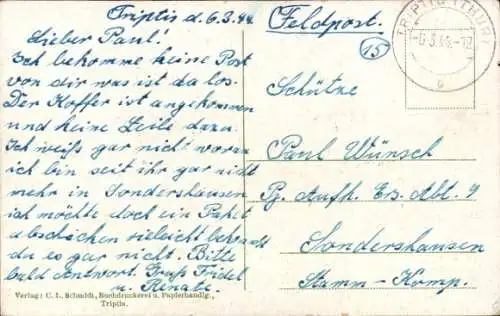 Triptis d. 6.3.44
Lieber Paul!
Ich bekomme keine Post
von dir was ist da los.
Der Koffer ist angekommen
und keine Zeile dazu.
Ich weiß gar nicht woran
ich bin seit ihr gar nicht
mehr in Sondershausen
ich möchte doch ein Paket
abschicken vieleicht bekommst
du es gar nicht. Bitte
bald Antwort. Gruß Friedel
u. Renate.
Verlag: C. L. Schmidt, Buchdruckerei u. Papierhandlg.,
Triptis.
Feldpost.
15
TRIPTIS (THÜR)
-6.3.44.-12
b
Schütze
Paul Wünsch
Pz. Aufkl. Ers. Abt. 4
Sondershausen
Stamm-Komp.